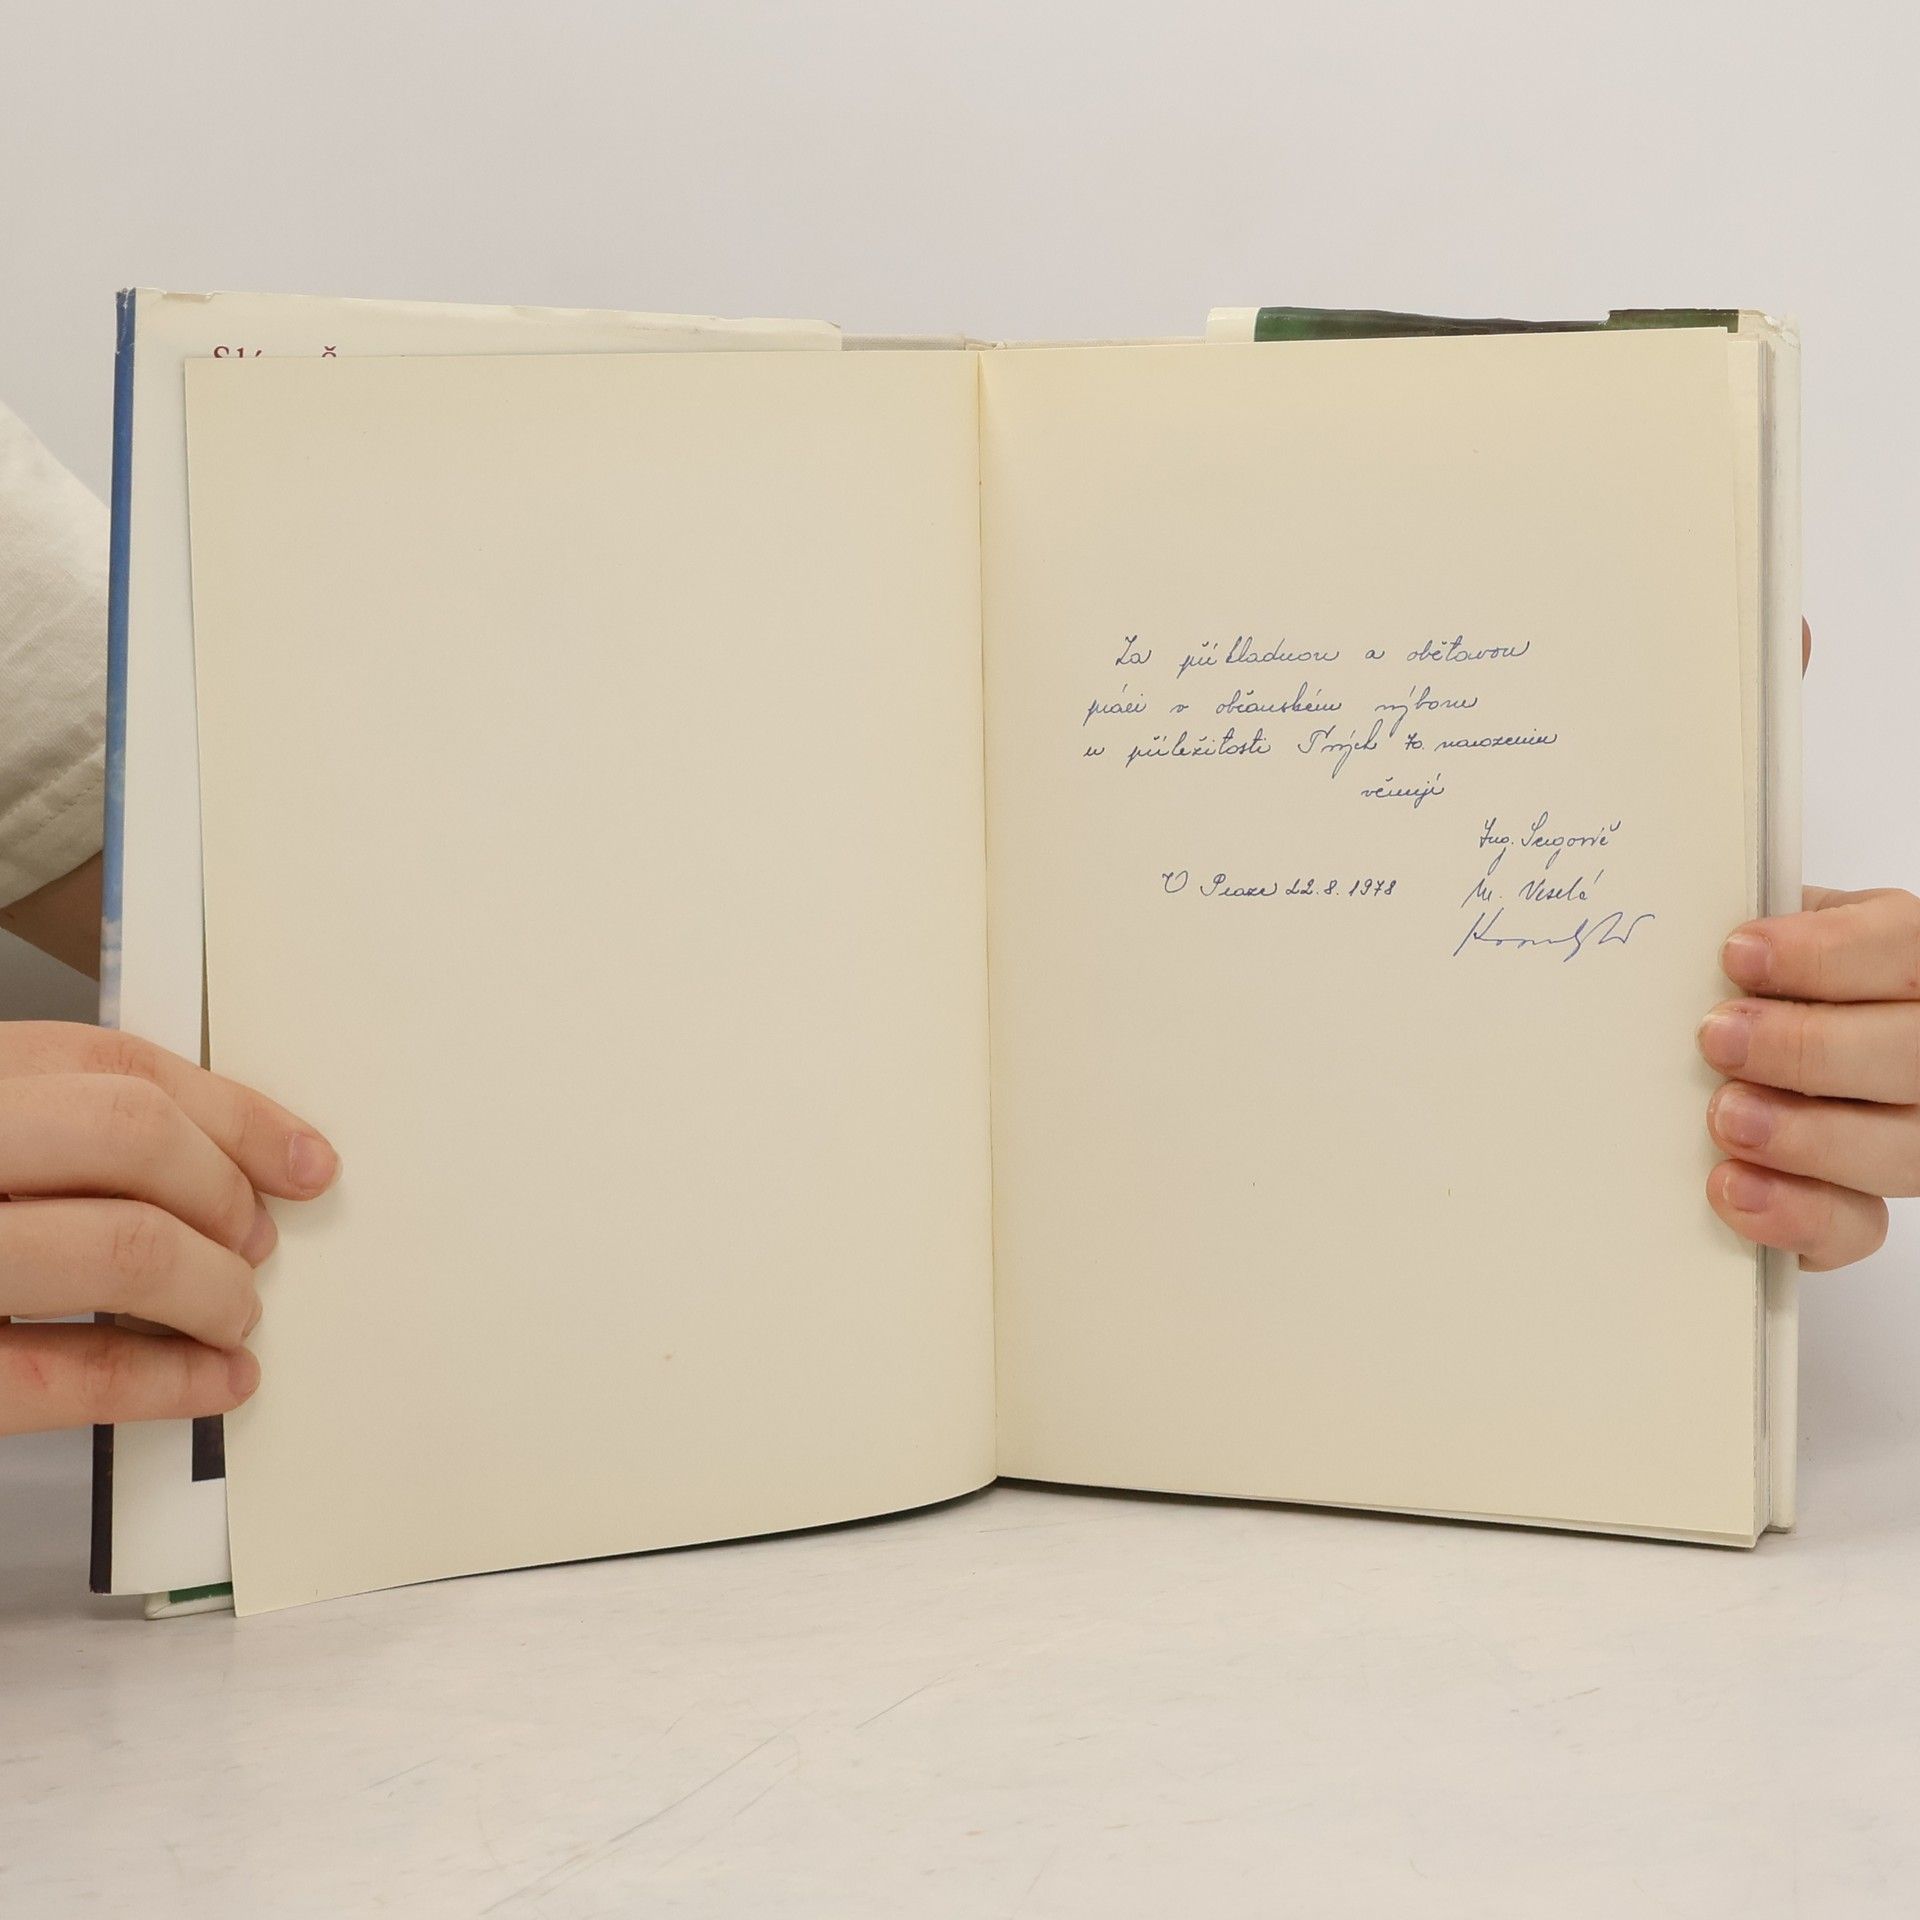 Za příkladnou a obětavou
práci v občanském výboru
u příležitosti Tvých 70. narozenin
věnují
Ing. Sergovič
V Praze 22.8.1978
M. Veselá